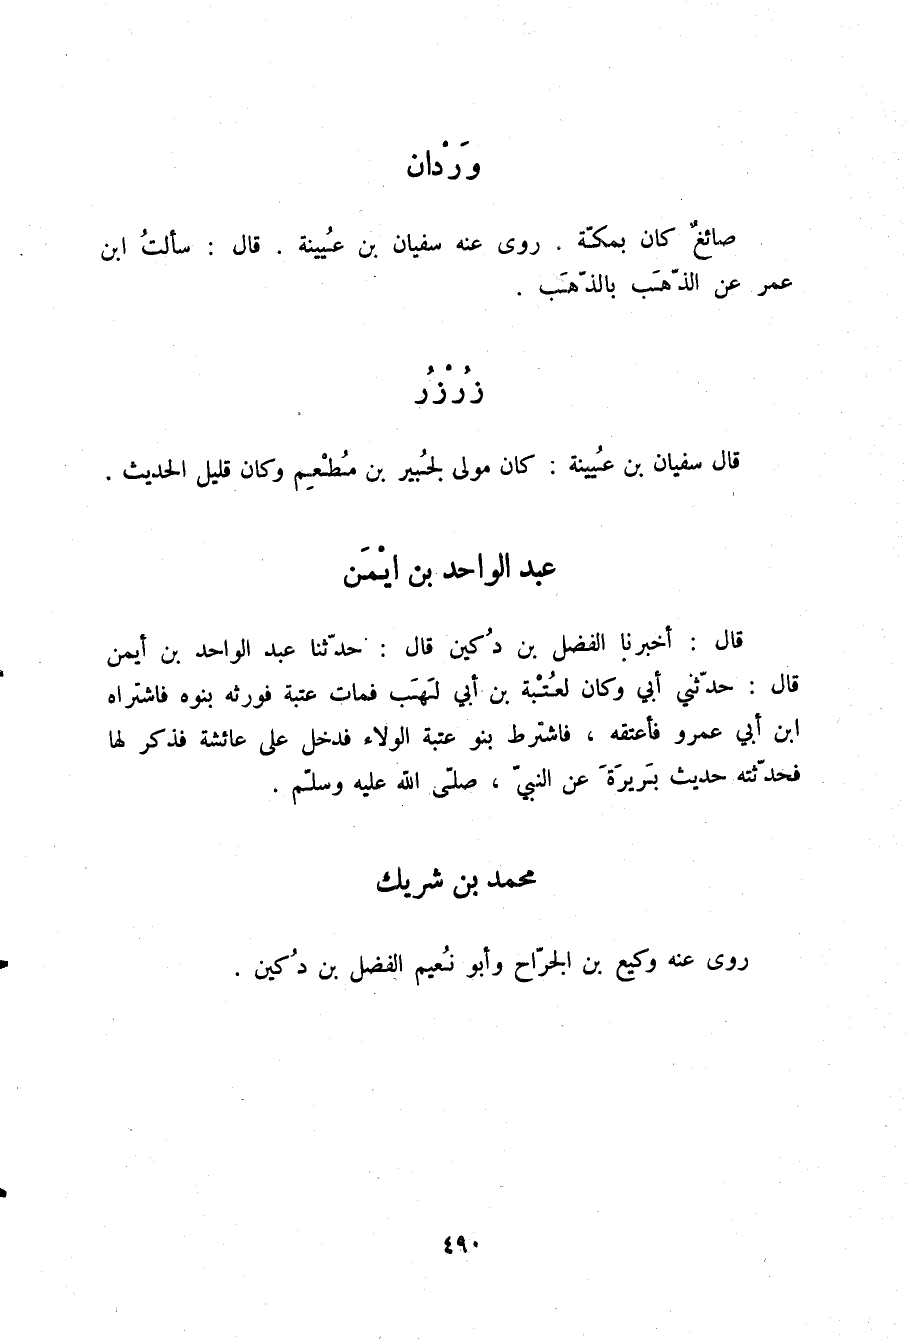 وَرْدان
صائغٌ كان بمكّة . روى عنه سفيان بن عُيينة . قال : سألتُ ابن
عمر عن الذّهَب بالذّهَب .
زُرْزُر
قال سفيان بن عُيينة : كان مولى لجُبير بن مُطْعِم وكان قليل الحديث .
عبد الواحد بن ايْمَن
قال : أخبرنا الفضل بن دُكين قال : حدّثنا عبد الواحد بن أيمن
قال : حدّثني أبي وكان لعُتْبة بن أبي لَهَب فمات عتبة فورثه بنوه فاشتراه
ابن أبي عمرو فأعتقه ، فاشترط بنو عتبة الولاء فدخل على عائشة فذكر لها
فحدّثته حديث بَريرَةَ عن النبيّ ، صلّى الله عليه وسلّم .
محمد بن شريك
روى عنه وكيع بن الجرّاح وأبو نُعيم الفضل بن دُكين .
٤٩٠